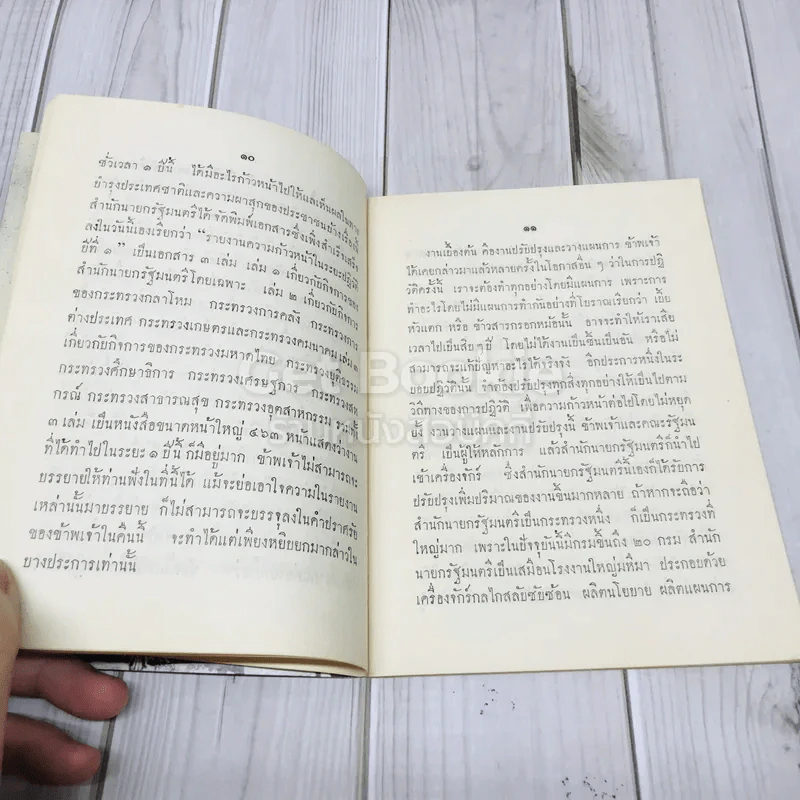 ๑๐
ชั่วเวลา ๑ ปีนี้ ได้มีอะไรก้าวหน้าไปให้แลเห็นผลในทาง
บำรุงประเทศชาติและความผาสุกของประชาชนบ้างเรื่องนี้
สำนักนายกรัฐมนตรีได้ จัดพิมพ์เอกสารซึ่งเพิ่งสำเร็จเสร็จ
ลงในวันนี้เองเรียกว่า “รายงานความก้าวหน้าในระยะปฏิวัติ
ปีที่ ๑” เป็นเอกสาร ๓ เล่ม เล่ม ๑ เกี่ยวกับกิจการของ
สำนักนายกรัฐมนตรีโดยเฉพาะ เล่ม ๒ เกี่ยวกับกิจการ
ของกระทรวงกลาโหม กระทรวงการคลัง กระทรวงการ
ต่างประเทศ กระทรวงเกษตรและกระทรวงคมนาคม เล่ม ๓
เกี่ยวกับกิจการของกระทรวงมหาดไทย กระทรวงยุติธรรม
กระทรวงศึกษาธิการ กระทรวงเศรษฐการ กระทรวงสห
กรณ์ กระทรวงสาธารณสุข กระทรวงอุตสาหกรรม รวมทั้ง
๓ เล่ม เป็นหนังสือขนาดหน้าใหญ่ ๔๖๓ หน้าแสดงว่างาน
ที่ได้ทำไปในระยะ ๑ ปีนี้ ก็มีอยู่มาก ข้าพเจ้าไม่สามารถจะ
บรรยายให้ท่านฟังในที่นี้ได้ แม้จะย่อเอาใจความในรายงาน
เหล่านั้นมาบรรยาย ก็ไม่สามารถจะบรรจุลงในคำปราศรัย
ของข้าพเจ้าในคืนนี้ จะทำได้แต่เพียงหยิบยกมากล่าวใน
บางประการเท่านั้น
๑๑
งานเบื้องต้น คืองานปรับปรุงและวางแผนการ ข้าพเจ้า
ได้เคยกล่าวมาแล้วหลายครั้งในโอกาสอื่น ๆ ว่าในการปฏิ
วัติครั้งนี้ เราจะต้องทำทุกอย่างโดยมีแผนการ เพราะการ
ทำอะไรโดยไม่มีแผนการทำกันอย่างที่โบราณเรียกว่า เบี้ย
หัวแตก หรือ ข้าวสารกรอกหม้อนั้น อาจจะทำให้เราเสีย
เวลาไปเป็นสิบ ๆ ปี โดยไม่ได้งานเป็นชิ้นเป็นอัน หรือไม่
สามารถจะแก้ปัญหาอะไรได้จริงจัง อีกประการหนึ่งในระ
บอบปฏิวัตินั้น จำต้องปรับปรุงทุกสิ่งทุกอย่างให้เป็นไปตาม
วิถีทางของการปฏิวัติ เพื่อความก้าวหน้าต่อไปโดยไม่หยุด
ยั้ง งานวางแผนและงานปรับปรุงนี้ ข้าพเจ้าและคณะรัฐมน
ตรี เป็นผู้ให้หลักการ แล้วสำนักนายกรัฐมนตรีก็นำไป
เข้าเครื่องจักร์ ซึ่งสำนักนายกรัฐมนตรีนี้เองก็ได้รับการ
ปรับปรุงเพิ่มปริมาณของงานขึ้นมากหลาย ถ้าหากจะถือว่า
สำนักนายกรัฐมนตรีเป็นกระทรวงหนึ่ง ก็เป็นกระทรวงที่
ใหญ่มาก เพราะในปัจจุบันนี้มีกรมขึ้นถึง ๒๐ กรม สำนัก
นายกรัฐมนตรีเป็นเสมือนโรงงานใหญ่มหึมา ประกอบด้วย
เครื่องจักร์กลไกสลับซับซ้อน ผลิตนโยบาย ผลิตแผนการ